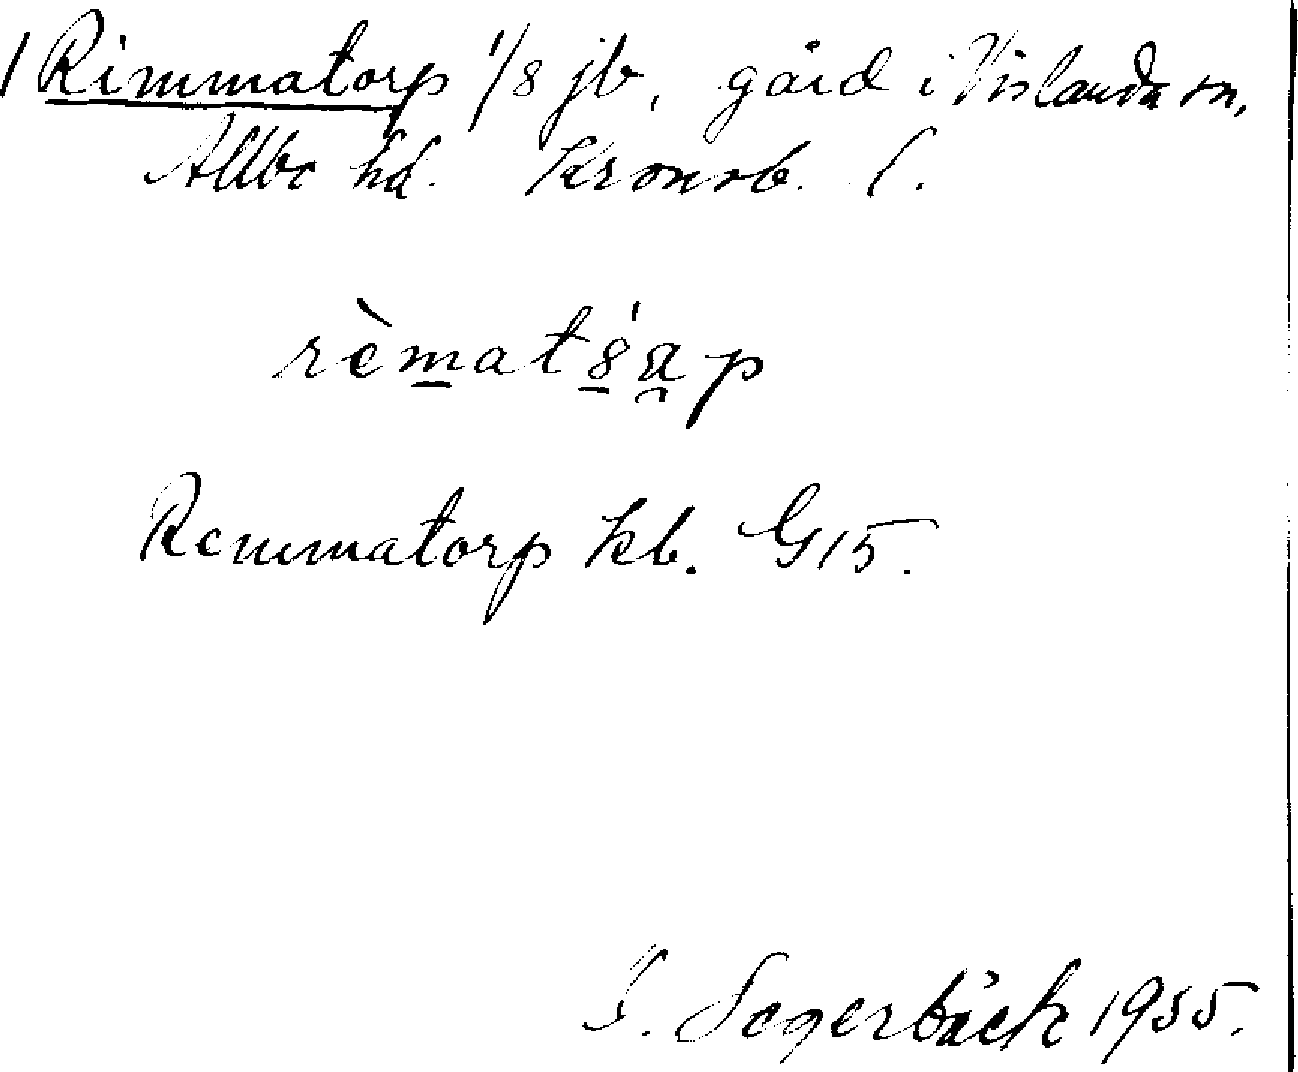 1 Rimmatorp 1/8 jb, gård i Vislanda sn,
Allbo hd. Kronob. l.
rèmat8́ap
Remmatorp kb. G15.
Segerbäck 1955.